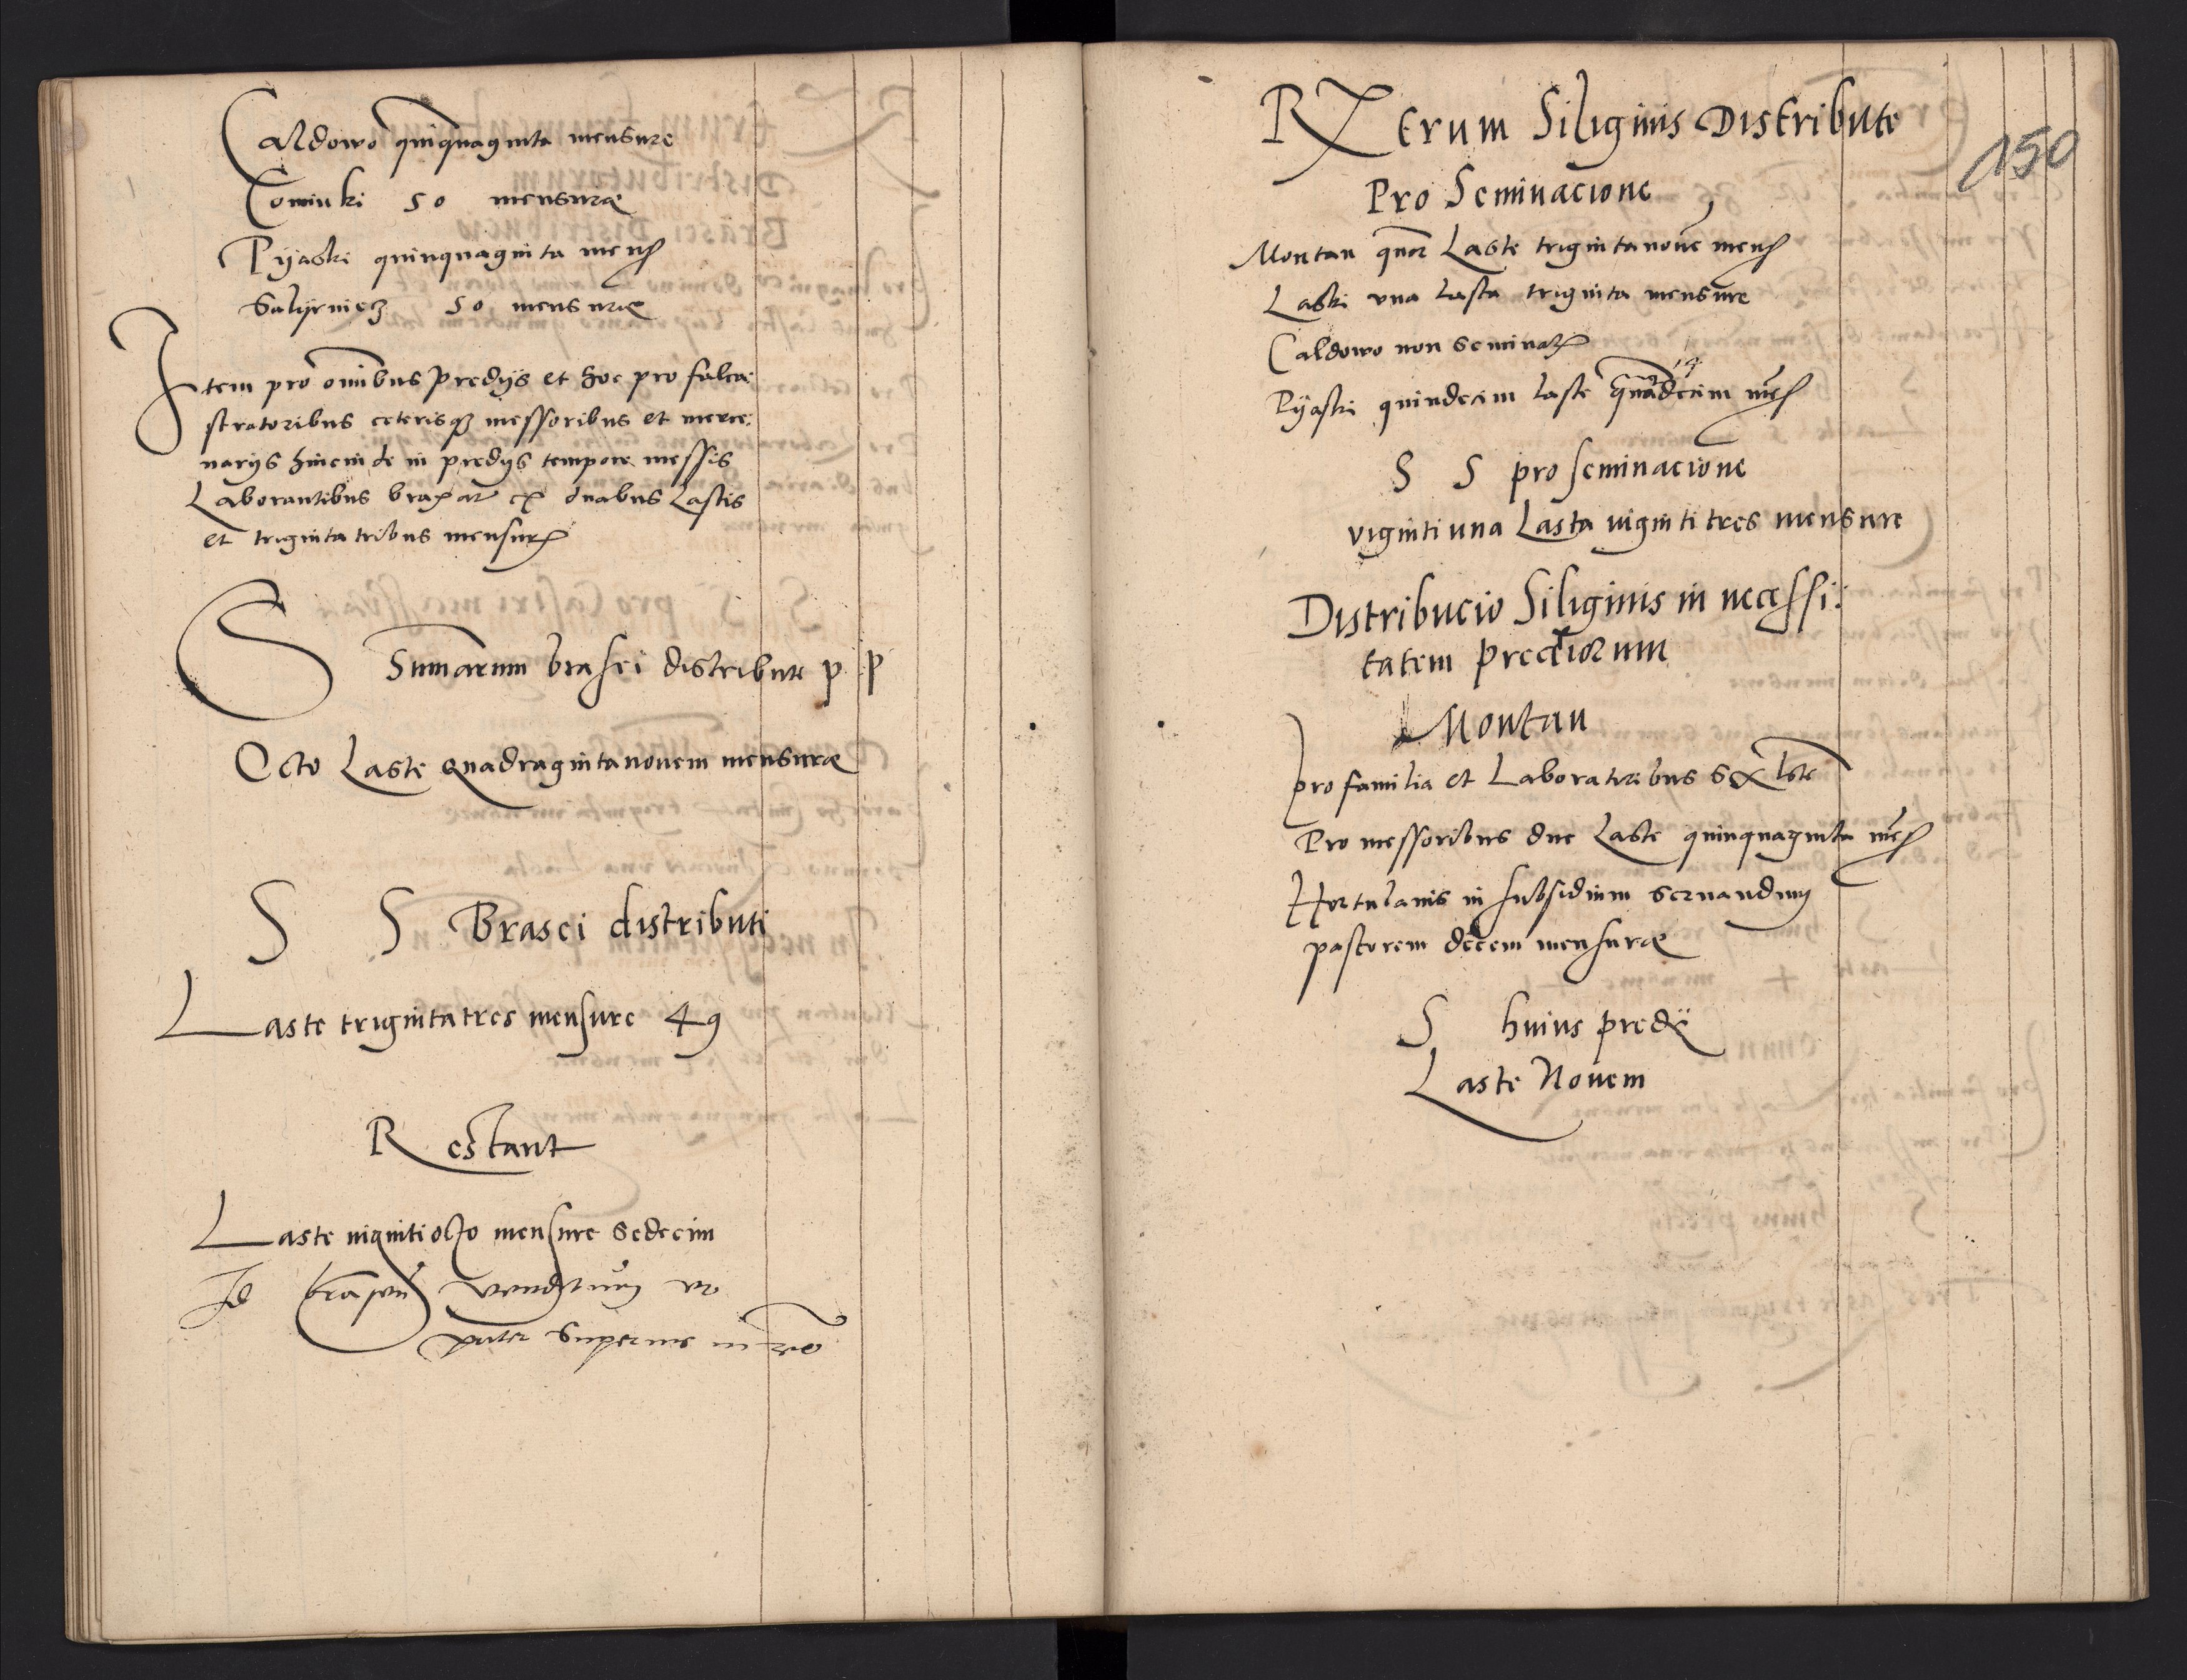 Caldowo quinquaginta mensure
Cominki 50 mensuræ
Pÿaski quinquaginta mens
50 mensuræ
Item pro omibus predijs et hoc pro falca:
stratoribus ceterisq messoribus et merce:
narijs hincinde in predijs tempore messis
Laborantibus braxat ex duabus Lastis
et triginta tribus mensur
Summarum brasei distributi p p
Octo Laste quadragintanouem mensuræ
S S Brasei distributi
Laste trigintatres mensure 49
Restant
Laste uigintiocto mensure sedecim
Id venditum
superius in
150
Rerum Siliginis Distribute
Pro Seminacione
Montau quor Laste trigintanoue mens
Laski vna Lasta triginta mensure
Caldowo non seminat
14
Pÿaski quindecim laste quadecim mes
S S pro seminacione
vigintiuna Lasta uigintitres mensure
Distribucio Siliginis in necessi:
tatem prediorum
Montau
pro familia et Laboratoribus sex Lste
Pro messoribus due Laste quinquaginta mes
Hortulanis in subsidium seruandum
pastorem decem mensuræ
S huius predij
Laste Nouem